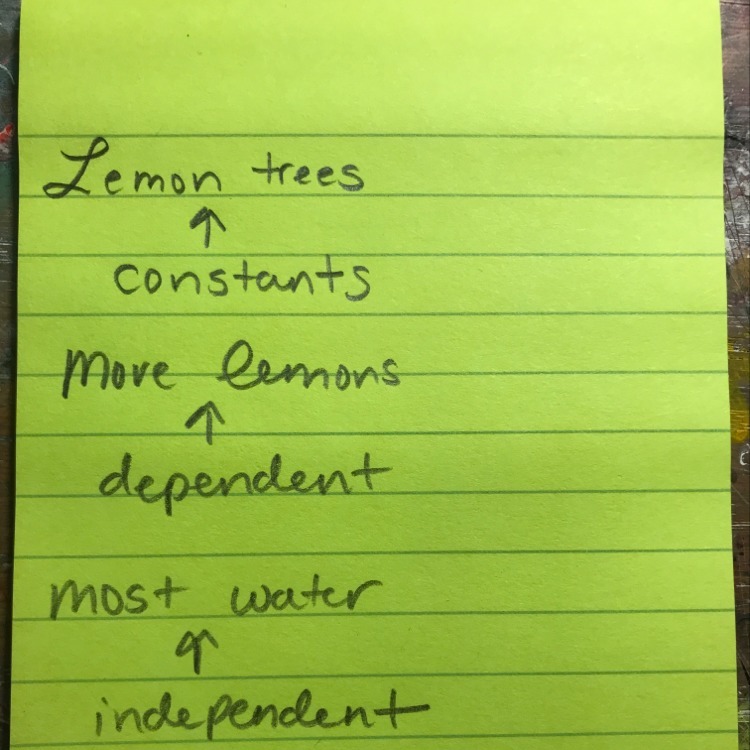 Lemon trees
↑
constants
More lemons
↑
dependent
most water
↑
independent